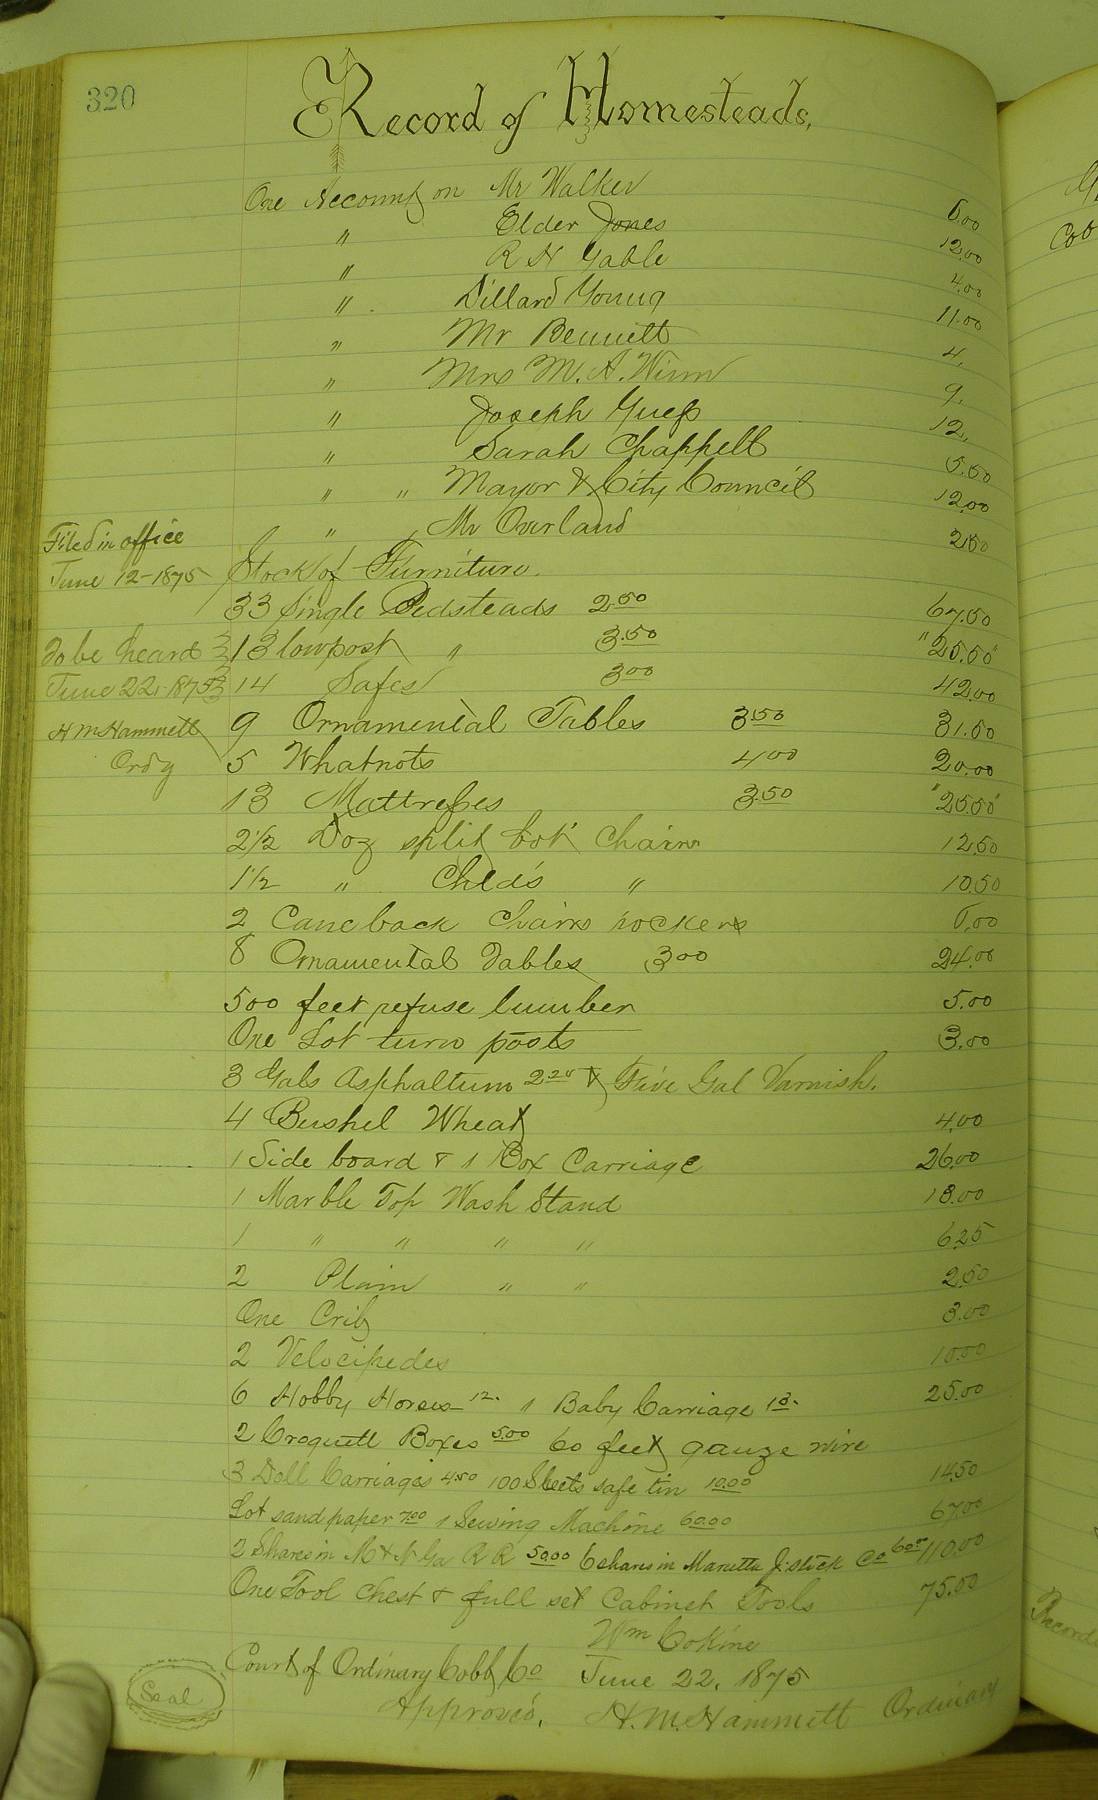 320
Record of Homesteads.
One Account on Mr Walker 6.00
" Elder Jones 12.00
" R N Gable 4.00
" Dillard Young 11.00
" Mr Bennett 4.
" Mrs M. A. Winn 9.
" Joseph Guess 12.
" Sarah Chappell 5.50
" " Mayor & City Council 12.00
" Mr Overland 2.50
Filed in office
June 12 - 1875
Stock of Furniture.
33 Single Bedsteads 2.50 67.50
To be heard
June 22, 1875
H M Hammett
Ordy
13 low post " 3.50 "25.50"
14 Safes 3.00 42.00
9 Ornamental Tables 3.50 31.50
5 Whatnots 4.00 20.00
13 Mattresses 3.50 "25.50"
2 1/2 Doz split bot Chairs 12.50
1 1/2 " Child's " 10.50
2 Cane back Chairs rockers 6.00
8 Ornamental Tables 3.00 24.00
500 feet refuse lumber 5.00
One Lot turn posts 3.00
3 Gals Asphaltum 2.20 & Five Gal Varnish.
4 Bushel Wheat 4.00
1 Side board & 1 Box Carriage 26.00
1 Marble Top Wash Stand 18.00
1 " " " " 6.25
2 Plain " " 2.50
One Crib 3.00
2 Velocipedes 10.00
6 Hobby Horses 12. 1 Baby Carriage 13. 25.00
2 Croquett Boxes 5.00 60 feet gauze wire
3 Doll Carriages 4.50 100 Sheets safe tin 10.00 14.50
Lot sand paper 7.00 1 Sewing Machine 60.00 67.00
2 Shares in M & N Ga R R 50.00 6 shares in Marietta J. stock Co 60.00 110.00
One Tool Chest & full set Cabinet Tools 75.00
Wm Cokine
Court of Ordinary Cobb Co June 22, 1875
Approved, H. M. Hammett Ordinary
Seal
Record